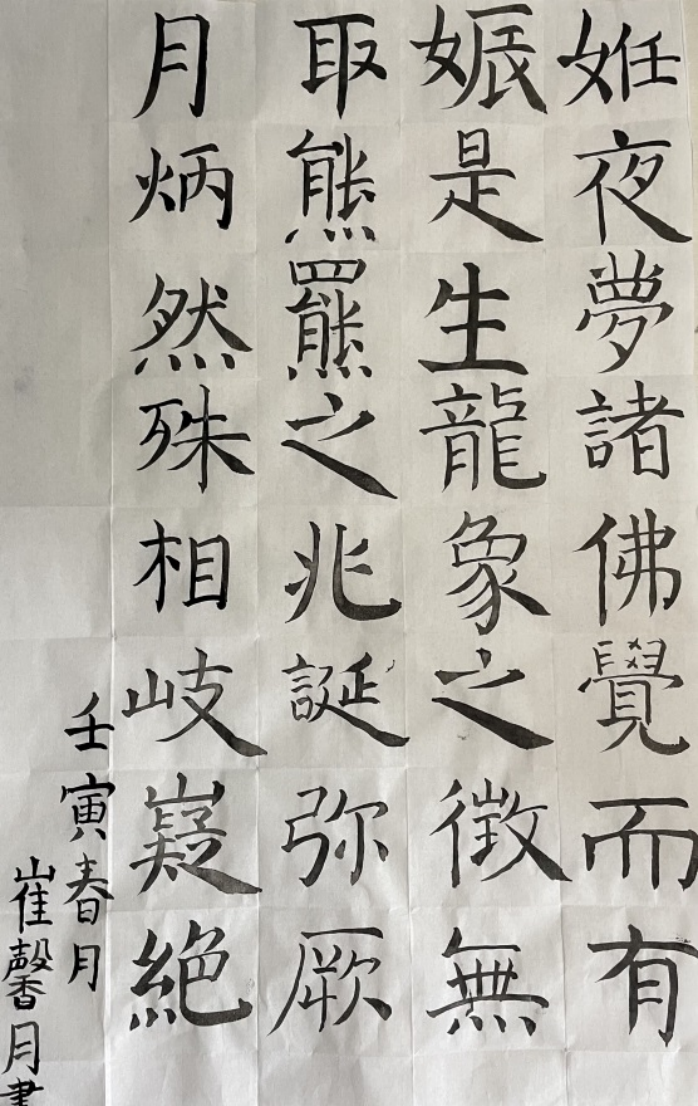 妊夜夢諸佛覺而有
娠是生龍象之徵無
取熊羆之兆誕弥厥
月炳然殊相岐嶷絕
壬寅春月
崔馨月書